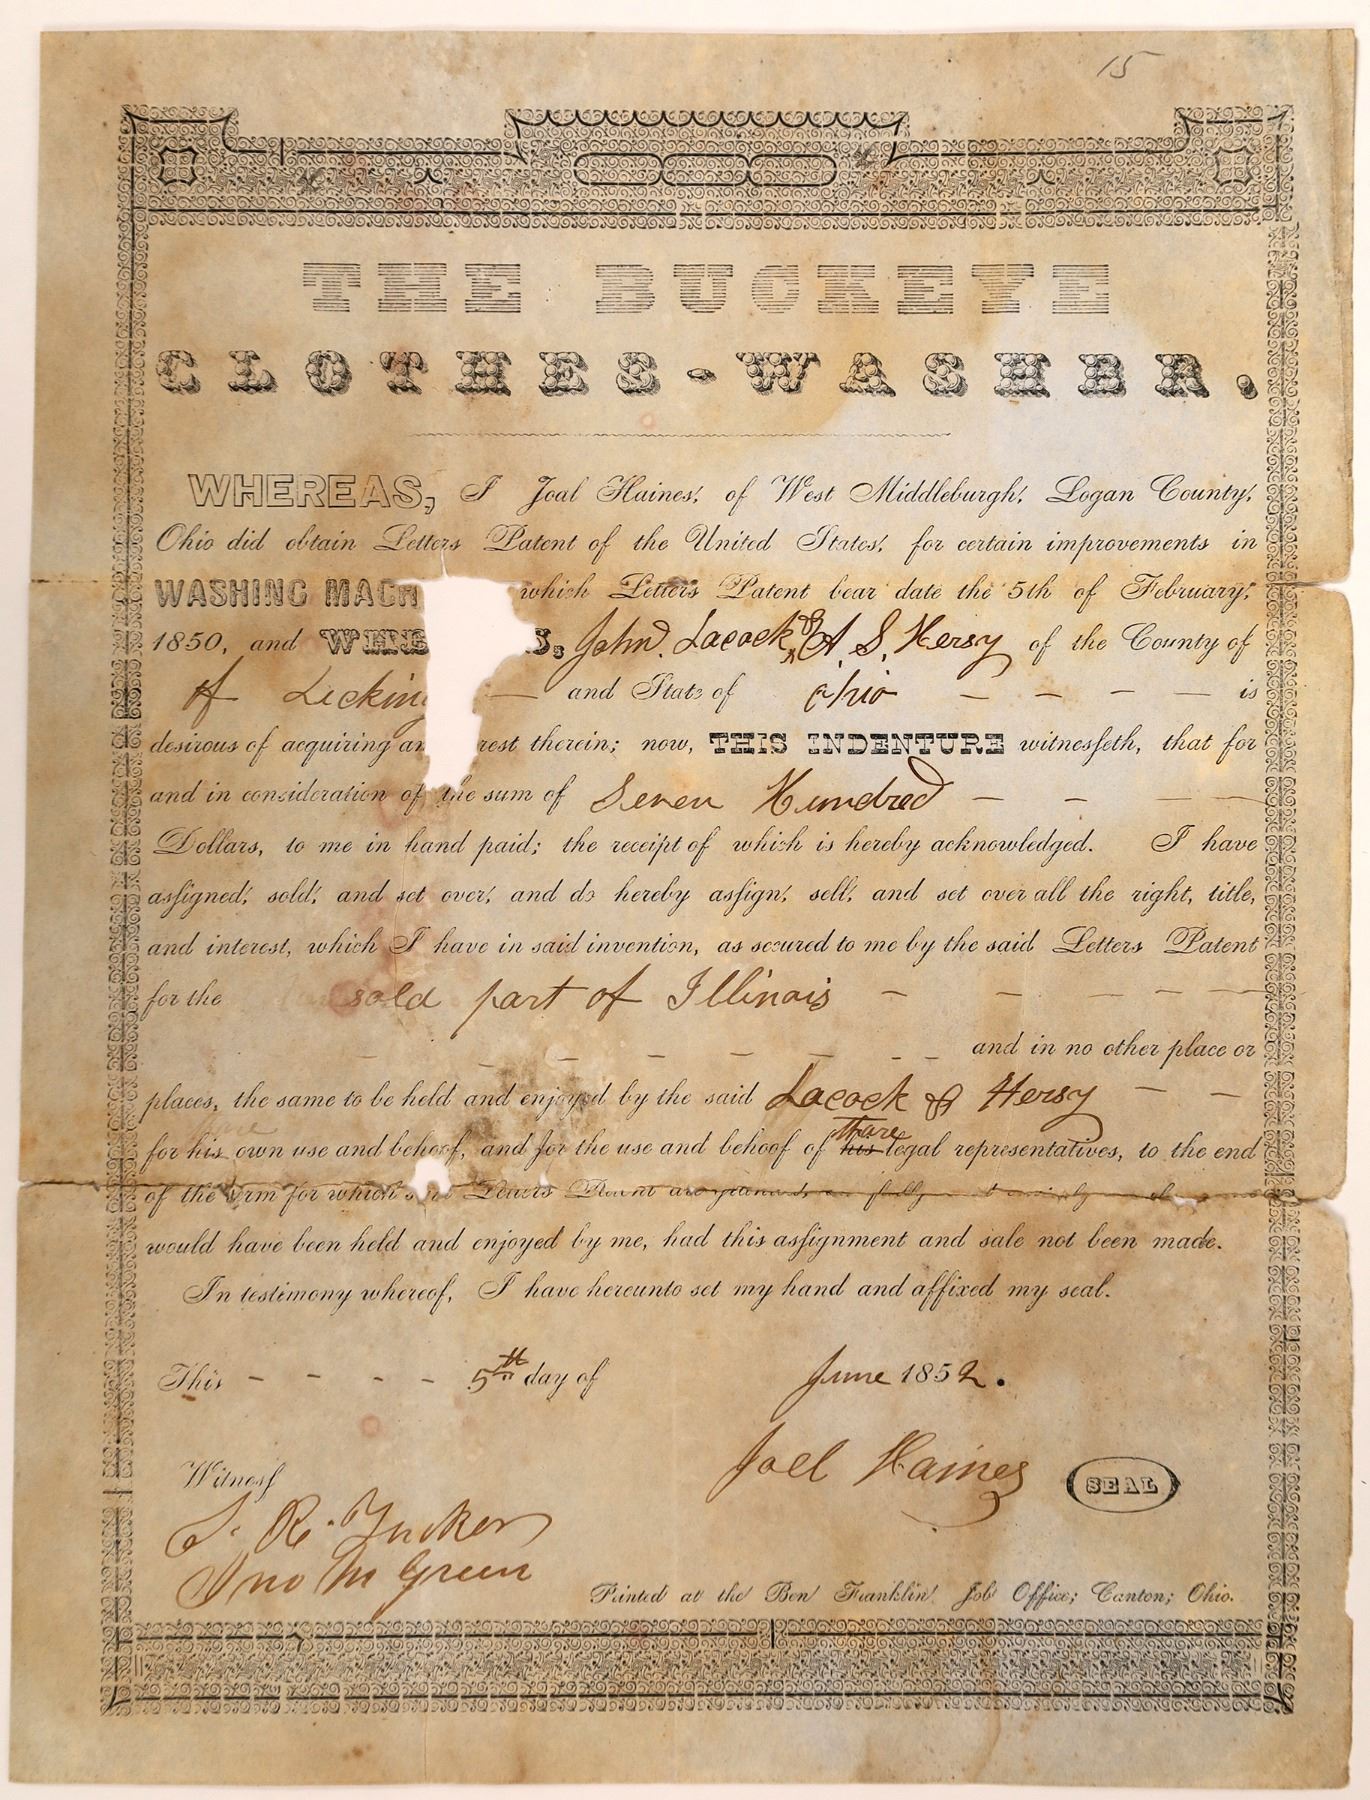 15
THE BUCKEYE
CLOTHES-WASHER.
WHEREAS, I Joal Haines, of West Middleburgh, Logan County,
Ohio did obtain Letters Patent of the United States, for certain improvements in
WASHING MACH which Letters Patent bear date the 5th of February,
1850, and WHE S, John Lacock & A. S. Hersy of the County of
of Licking — and State of Ohio — — — — is
desirous of acquiring an rest therein; now, THIS INDENTURE witnesseth, that for
and in consideration of the sum of Seven Hundred — — —
Dollars, to me in hand paid; the receipt of which is hereby acknowledged. I have
assigned, sold, and set over, and do hereby assign, sell, and set over all the right, title,
and interest, which I have in said invention, as secured to me by the said Letters Patent
for the sold part of Illinois — — — — —
— — — — — — — and in no other place or
places, the same to be held and enjoyed by the said Lacock & Hersy — —
for his own use and behoof, and for the use and behoof of his thare legal representatives, to the end
of the term for which Letters Patent are
would have been held and enjoyed by me, had this assignment and sale not been made.
In testimony whereof, I have hereunto set my hand and affixed my seal.
This — — — — 5th day of June 1852.
Joel Haines SEAL
Witness
S. R. Tucker
Jno M Green
Printed at the Ben Franklin Job Office; Canton; Ohio.